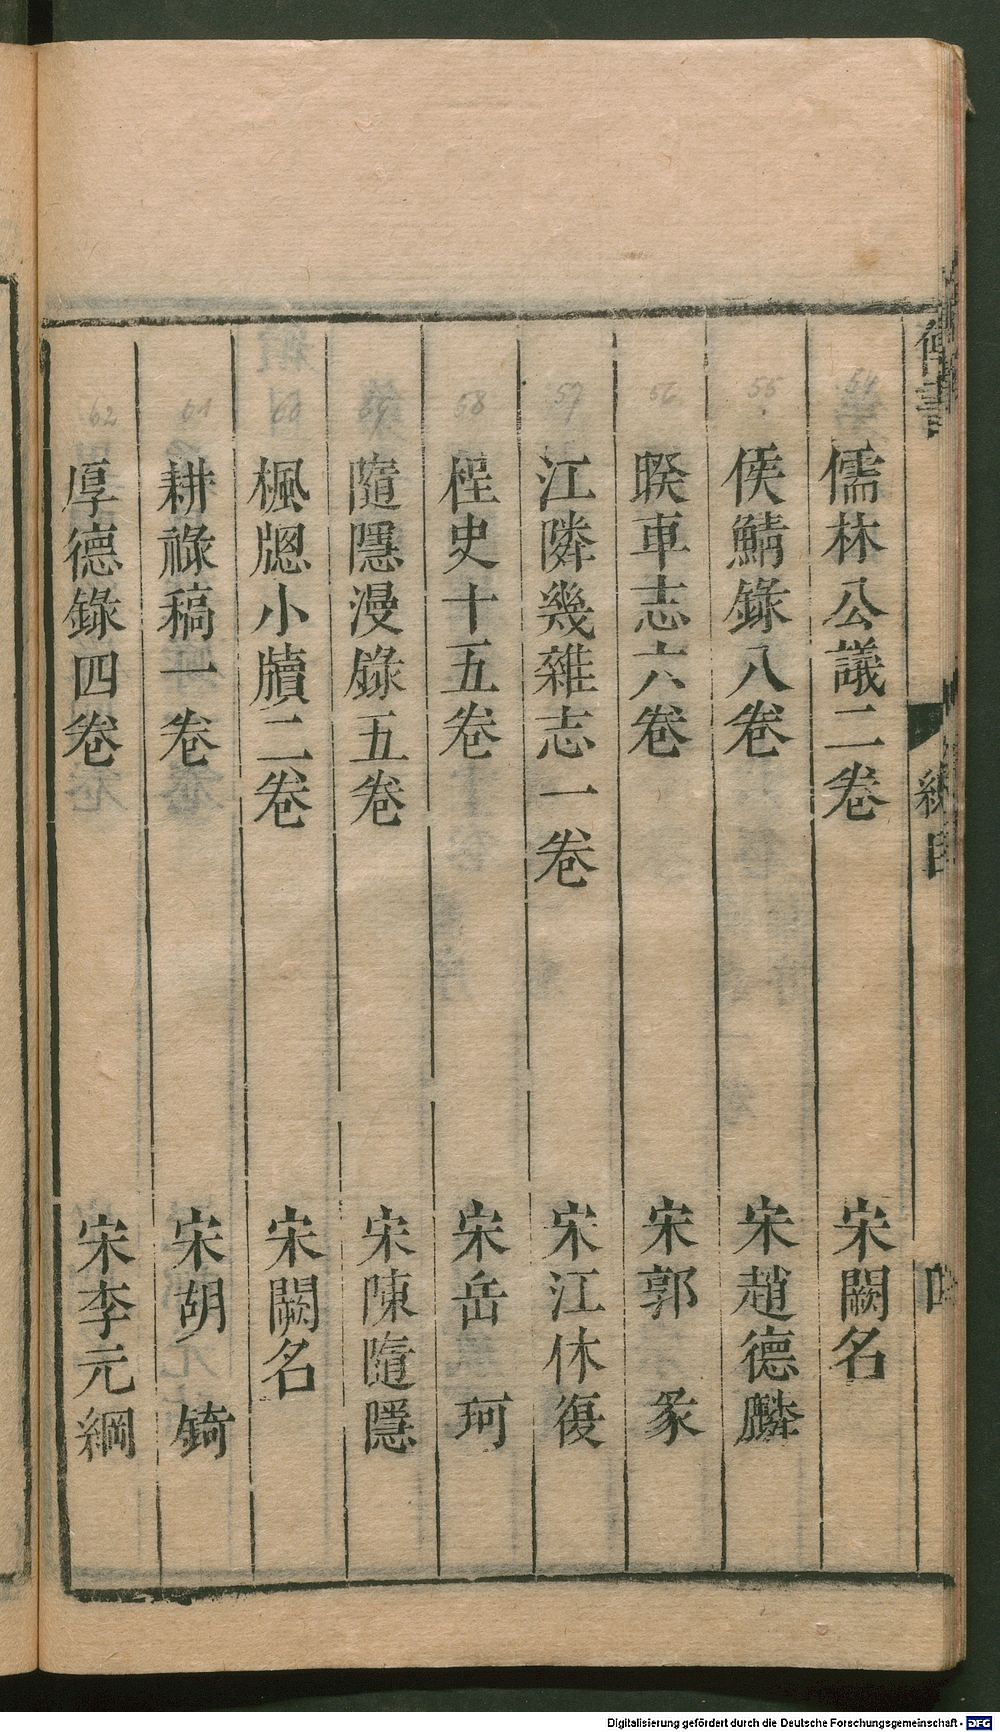 54
儒林公議二卷 宋闕名
55
侯鯖錄八卷 宋趙德麟
56
睽車志六卷 宋郭彖
57
江隣幾雜志一卷 宋江休復
58
桯史十五卷 宋岳珂
59
隨隱漫錄五卷 宋陳隨隱
60
楓牕小牘二卷 宋闕名
61
耕祿稿一卷 宋胡錡
62
厚德錄四卷 宋李元綱
Digitalisierung gefördert durch die Deutsche Forschungsgemeinschaft - DFG